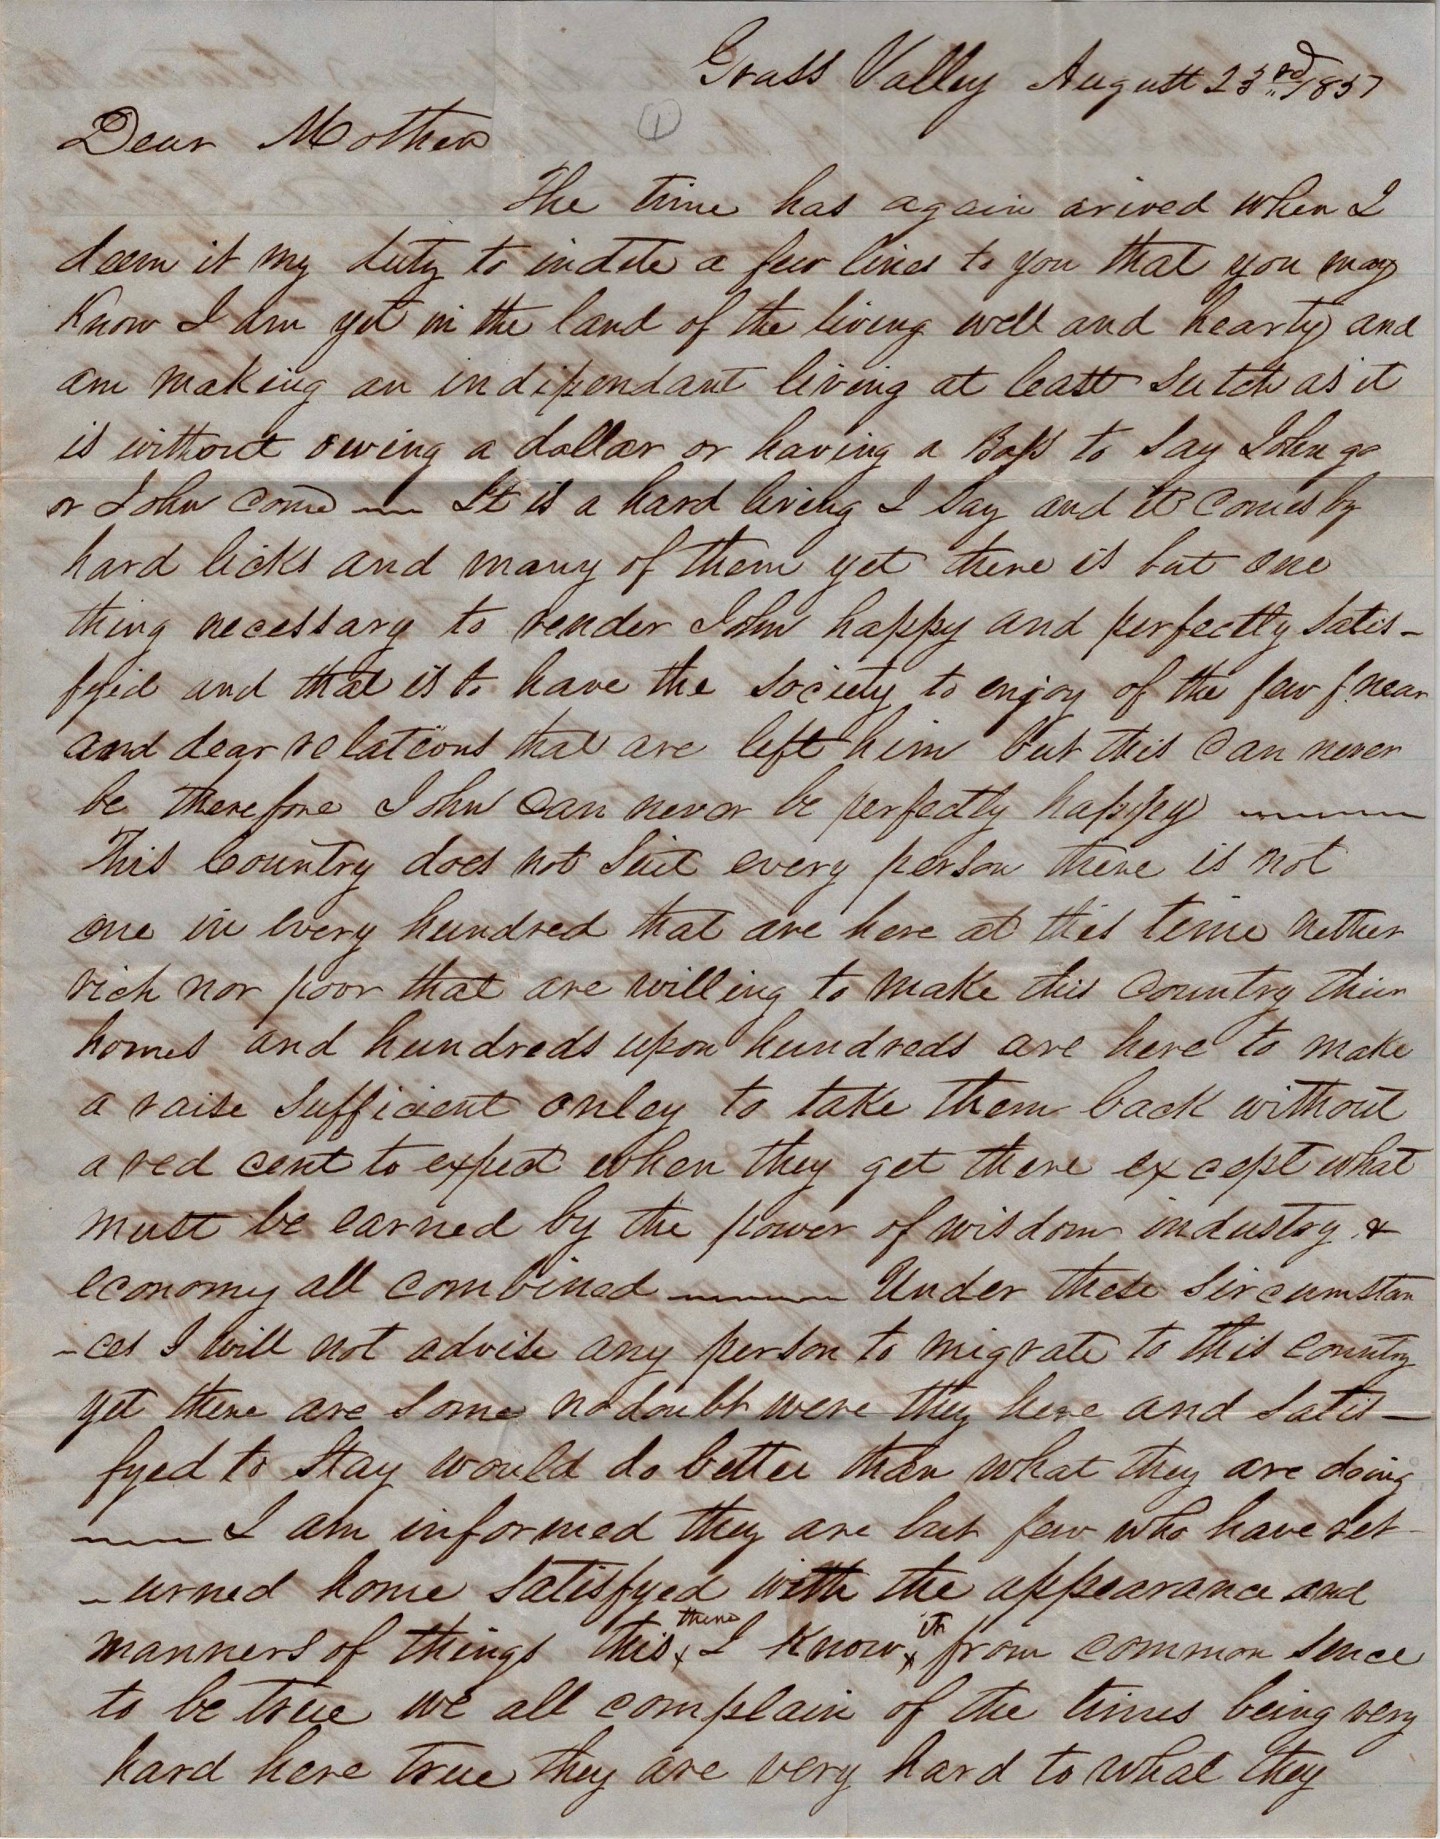 Grass Valley August 23rd 1857
①
Dear Mother
The time has again arived when I
deem it my duty to indite a few lines to you that you may
Know I am yet in the land of the living well and hearty and
am making an indipendant living at least Sutch as it
is without owing a dollar or having a Boss to Say John go
or John come —— It is a hard living I Say and it comes by
hard licks and many of them yet there is but one
thing necessary to render John happy and perfectly Satis-
fyid and that is to have the Society to enjoy of the few near
and dear relations that are left him but this can never
be therefore John can never be perfectly happy ——
This Country does not Suit every person there is not
one in every hundred that are here at this time nether
rich nor poor that are willing to make this Country thier
homes and hundreds upon hundreds are here to make
a raise Sufficient onley to take them back without
a red cent to expect when they get there except what
must be earned by the power of wisdom industry &
economy all combined —— Under these Sircumstan
-ces I will not advise any person to migrate to this country
yet there are Some no doubt were they here and Satis-
fyed to Stay would do better than what they are doing
—— I am informed they are but few who have ret-
-urned home Satisfyed with the appearance and
manners of things this there I Know it from common Sence
to be true we all complain of the times being very
hard here true they are very hard to what they